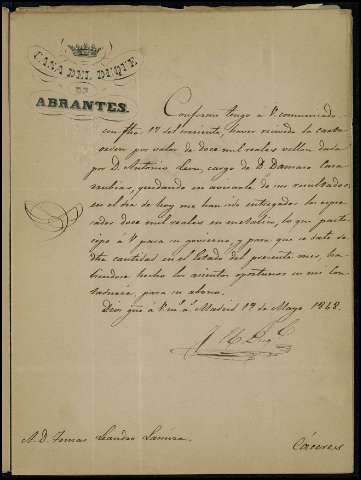 CASA DEL DUQUE
DE
ABRANTES.
Conforme tengo á V. comunicado
con fha 1º del corriente, haver recivido la carta
orden por valor de doce mil reales vellon dada
por D. Antonio cargo de D. Damaso Casa
rrubias, quedando en avisarle de sus resultados,
en el dia de hoy me han sido entregados los espre
sados doce mil reales en metalico, lo que parti
cipo á V. para su govierno, y para que se date de
dha cantidad en el Estado del presente mes, ha
biendose hecho los asientos oportunos en mi con
taduria, para su abono.
Dios gue á V. ms. as. Madrid 19 de Mayo 1848.
A D. Tomas Leandro
Cáceres